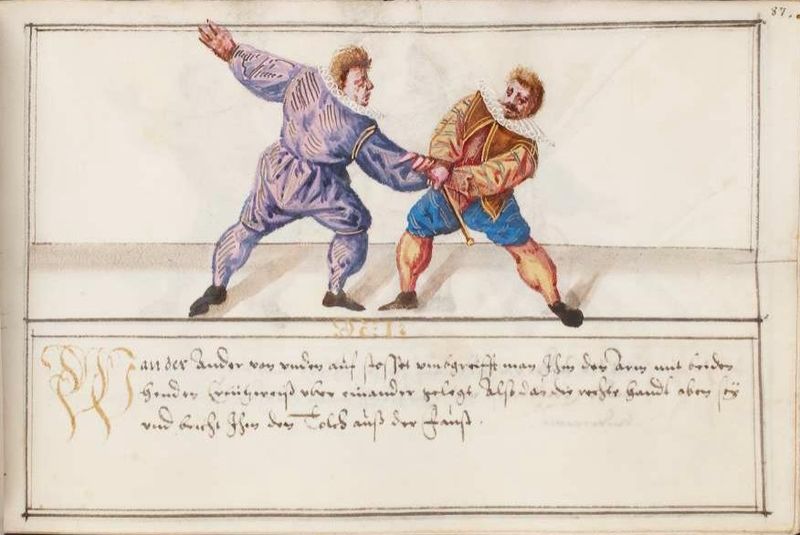 87.
Wan der Ander von vnden auf stosset vmbgreifft man Ihm den Arm mit beiden
henden Creützweiß vber einander gelegt, Also das die rechte handt oben seÿ
vnd bricht Ihm den Tolch auß der Faust.